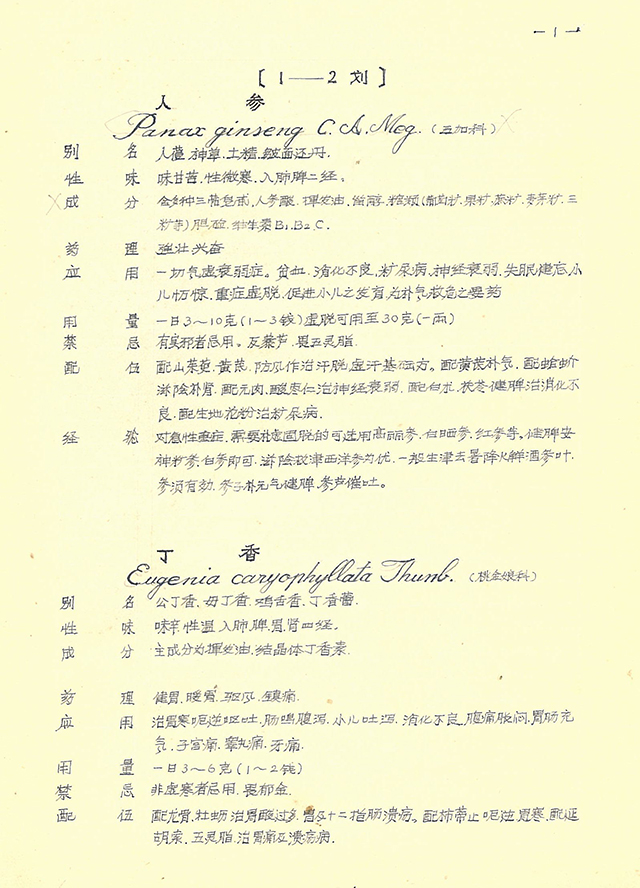 —1—
[1——2 划]
人 参
Panax ginseng C.A.Meg.(五加科)
别 名 人葠.神草.土精.皱面还丹.
性 味 味甘苦.性微寒.入肺脾二经。
成 分 含多种三萜皂甙.人参酸.挥发油.甾醇.糖类(葡萄糖.果糖.蔗糖.麦芽糖.三
糖等)胆硷.维生素B₁.B₂.C.
药 理 强壮兴奋
应 用 一切气虚衰弱症。贫血.消化不良.糖尿病.神经衰弱.失眠健忘小
儿惊.重症虚脱.促进小儿之发育.为补气救急之要药
用 量 一日3～10克(1～3钱)虚脱可用至30克(一两)
禁 忌 有实邪者忌用。反藜芦.畏五灵脂.
配 伍 配山茱萸.黄芪.防风作治汗脱.虚汗基础方。配黄芪补气.配蛤蚧
滋阴补肾.配元肉.酸枣仁治神经衰弱.配白术.茯苓健脾治消化不
良.配生地.花粉治糖尿病.
经 验 对急性重症.需要补虚固脱的可选用高丽参.白晒参.红参等。健脾安
神糖参.白参即可.滋阴救津西洋参为优.一般生津去暑降火鲜酒参叶.
参须有効.参子补元气健脾.参芦催吐。
丁 香
Eugenia caryophyllata Thunb.(桃金娘科)
别 名 公丁香.母丁香.鸡舌香.丁香蕾.
性 味 味辛.性温.入肺.脾.胃.肾四经.
成 分 主成分为挥发油.结晶体丁香素.
药 理 健胃.暖胃.驱风.镇痛.
应 用 治胃寒呃逆呕吐.肠鸣腹泻.小儿吐泻.消化不良.腹痛胀闷.胃肠充
气.子宫痛.睾丸痛.牙痛.
用 量 一日3～6克(1～2钱)
禁 忌 非虚寒者忌用.畏郁金.
配 伍 配龙骨.牡蛎治胃酸过多.胃及十二指肠溃疡。配柿蒂止呃逆胃寒.配延
胡索.五灵脂.治胃痛及溃疡病.